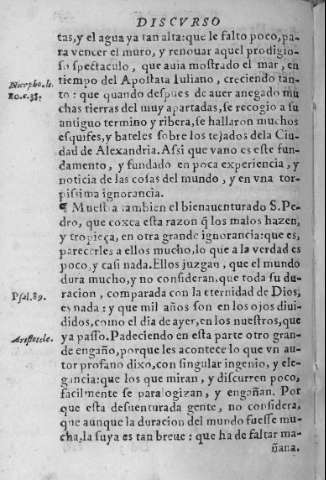 DISCVRSO
tas, y el agua ya tan alta: que le falto poco, pa-
ra vencer el muro, y renouar aquel prodigio-
so spectaculo, que auia mostrado el mar, en
Nicepho. li. 10. c. 35.
tiempo del Apostata Iuliano, creciendo tan-
to: que quando despues de auer anegado mu
chas tierras del muy apartadas, se recogio a su
antiguo termino y ribera, se hallaron muchos
esquifes, y bateles sobre los tejados dela Ciu
dad de Alexandria. Assi que vano es este fun-
damento, y fundado en poca experiencia, y
noticia de las cosas del mundo, y en vna tor-
pissima ignorancia.
¶ Muestra tambien el bienauenturado S. Pe-
dro, que coxea esta razon q̃ los malos hazen,
y tropieça, en otra grande ignorancia: que es,
parecerles a ellos mucho, lo que a la verdad es
poco, y casi nada. Ellos juzgan, que el mundo
dura mucho, y no consideran, que toda su du-
Psal. 89.
racion, comparada con la eternidad de Dios,
es nada: y que mil años son en los ojos diui-
didos, como el dia de ayer, en los nuestros, que
Aristotele.
ya passo. Padeciendo en esta parte otro gran-
de engaño, porque les acontece lo que vn au-
tor profano dixo, con singular ingenio, y ele-
gancia: que los que miran, y discurren poco,
facilmente se paralogizan, y engañan. Por
que esta desuenturada gente, no considera,
que aunque la duracion del mundo fuesse mu-
cha, la suya es tan breue: que ha de faltar ma-
ñana.